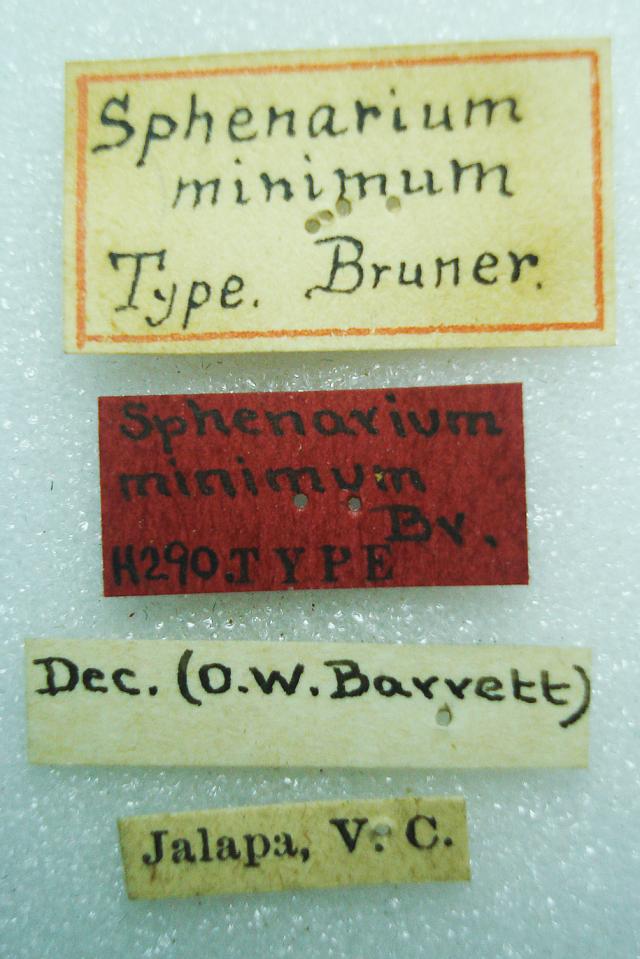 Sphenarium
minimum
Type. Bruner.
Sphenarium
minimum
Br.
H290.TYPE
Dec. (O.W. Barrett)
Jalapa, V. C.